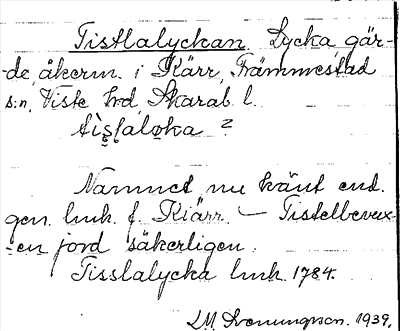 Tistlalyckan. Lycka, gär-
de, åkerm. i Kärr, Främmestad
s:n, Viste hrd, Skarab. l.
Namnet nu känt end.
gen. lmk. f. Kärr. — Tistelbevux-
-en jord säkerligen.
Tisslalycka lmk. 1784.
1939.